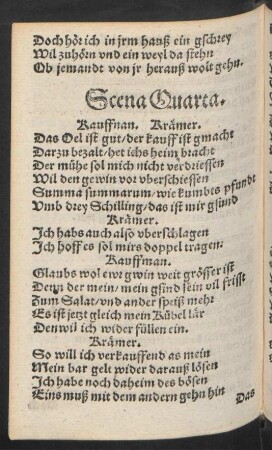 Doch hör ich in jrm hauß ein gschrey
Wil zuhörn vnd ein weyl da stehn
Ob jemandt von jr herauß wolt gehn.
Scena Quarta.
Kauffman. Krämer.
Das Oel ist gut / der kauff ist gmacht
Darzu bezalt / het ichs heim bracht
Der mühe sol mich nicht verdriessen
Wil den gewin vor vberschiessen
Summa summarum / wie kumbts pfundt
Vmb drey Schilling / das ist mir gsund
Krämer.
Ich habs auch also vberschlagen
Ich hoff es sol mirs doppel tragen.
Kauffman.
Glaubs wol ewr gwin weit grösser ist
Denn der mein / mein gsind sein vil frist
Zum Salat / vnd ander speiß mehr
Es ist jetzt gleich mein Kübel lär
Den wil ich wider füllen ein.
Krämer.
So will ich verkauffend as mein
Mein bar gelt wider darauß lösen
Ich habe noch daheim des bösen
Eins muß mit dem andern gehn hin
Das